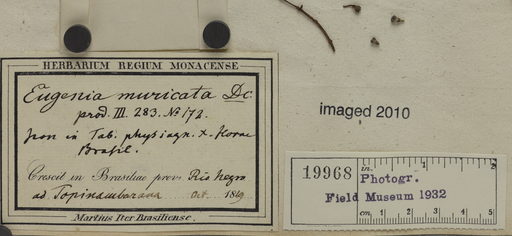 HERBARIUM REGIUM MONACENSE
Eugenia muricata Dc
prod. III. 283. No 172.
Icon in Tab. physiogn. Florae
Brasil.
Crescit in Brasiliae prov. Rio Negro
ad Topinambarana Oct. 1819
Martius Iter Brasiliense.
imaged 2010
19968
in. 1 2
Photogr.
Field Museum 1932
cm. 1 2 3 4 5